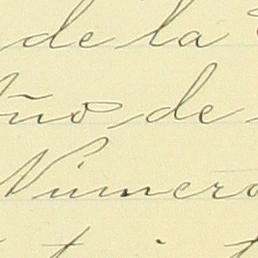 de la
ño de
Número